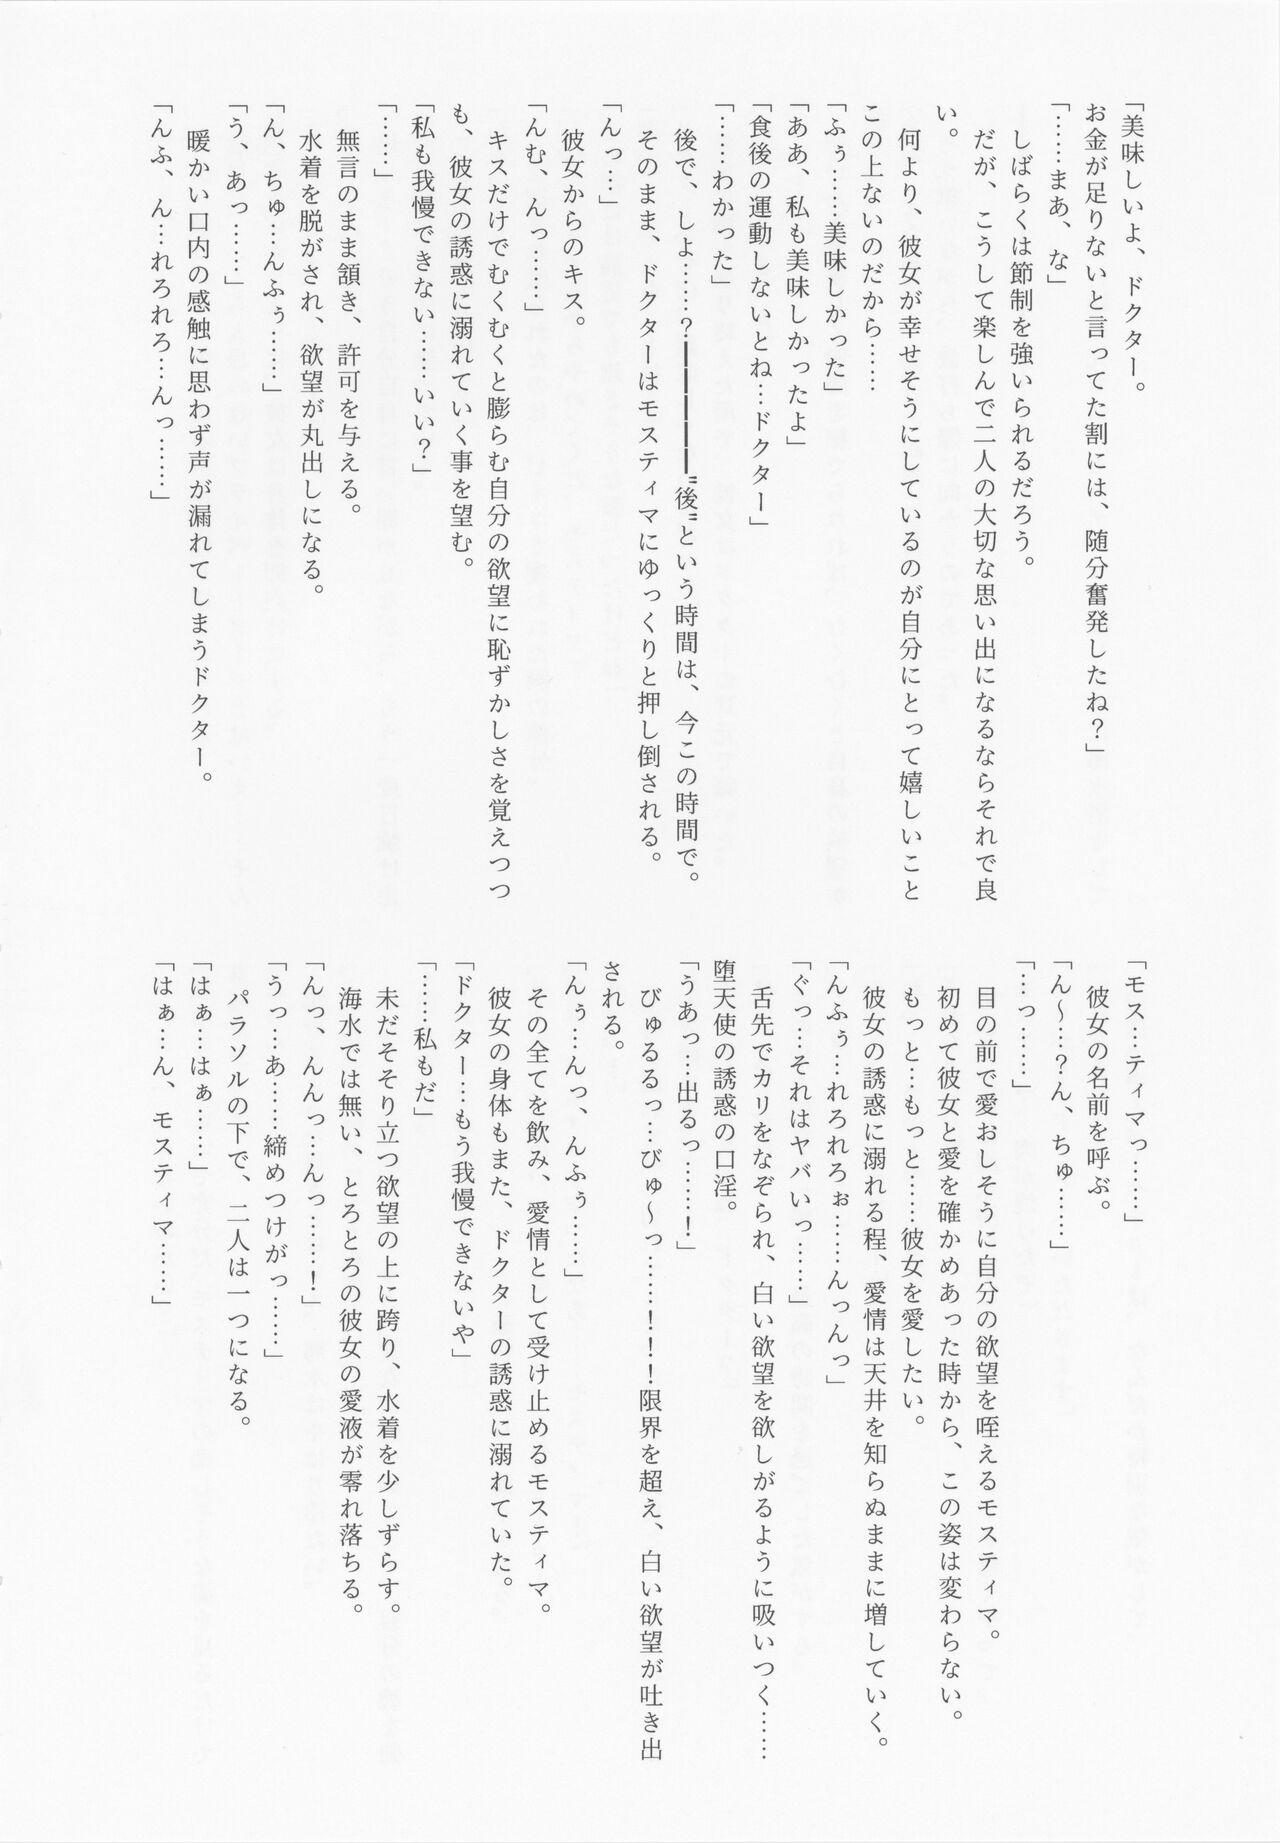 「美味しいよ、ドクター。
お金が足りないと言ってた割には、随分奮発したね？」
「……まあ、な」
しばらくは節制を強いられるだろう。
だが、こうして楽しんで二人の大切な思い出になるならそれで良
い。
何より、彼女が幸せそうにしているのが自分にとって嬉しいこと
この上ないのだから……
「ふぅ……美味しかった」
「ああ、私も美味しかったよ」
「食後の運動しないとね…ドクター」
「……わかった」
後で、しよ……？━━━━━〝後〟という時間は、今この時間で。
そのまま、ドクターはモスティマにゆっくりと押し倒される。
「んっ…」
彼女からのキス。
「んむ、んっ……」
キスだけでむくむくと膨らむ自分の欲望に恥ずかしさを覚えつつ
も、彼女の誘惑に溺れていく事を望む。
「私も我慢できない……いい？」
「……」
無言のまま頷き、許可を与える。
水着を脱がされ、欲望が丸出しになる。
「ん、ちゅ…んふぅ……」
「う、あっ……」
暖かい口内の感触に思わず声が漏れてしまうドクター。
「んふ、ん…れろれろ…んっ……」
「モス…ティマっ……」
彼女の名前を呼ぶ。
「ん～…？ん、ちゅ……」
「…っ……」
目の前で愛おしそうに自分の欲望を咥えるモスティマ。
初めて彼女と愛を確かめあった時から、この姿は変わらない。
もっと…もっと……彼女を愛したい。
彼女の誘惑に溺れる程、愛情は天井を知らぬままに増していく。
「んふぅ…れろれろぉ……んっんっ」
「ぐっ…それはヤバいっ……」
舌先でカリをなぞられ、白い欲望を欲しがるように吸いつく……
堕天使の誘惑の口淫。
「うあっ…出るっ……！」
びゅるるっ…びゅ～っ……！！！限界を超え、白い欲望が吐き出
される。
「んぅ…んっ、んふぅ……」
その全てを飲み、愛情として受け止めるモスティマ。
彼女の身体もまた、ドクターの誘惑に溺れていた。
「ドクター…もう我慢できないや」
「……私もだ」
未だそそり立つ欲望の上に跨り、水着を少しずらす。
海水では無い、とろとろの彼女の愛液が零れ落ちる。
「んっ、んんっ…んっ……！」
「うっ…あ……締めつけがっ……」
パラソルの下で、二人は一つになる。
「はぁ…はぁ……」
「はぁ…ん、モスティマ……」